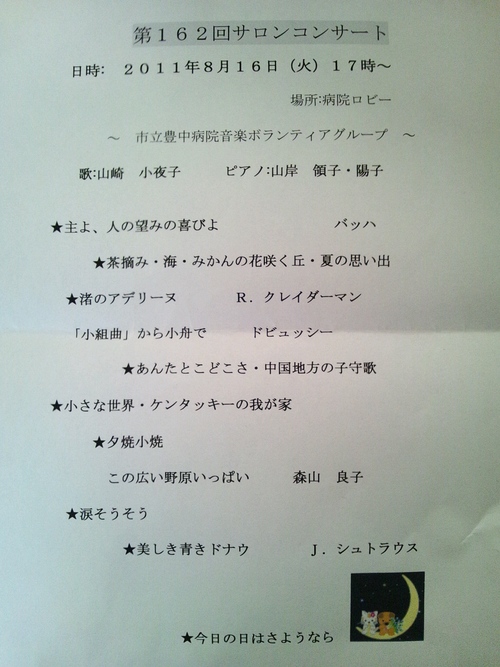 第１６２回サロンコンサート
日時:　２０１１年８月１６日（火）１７時～
場所:病院ロビー
～　市立豊中病院音楽ボランティアグループ　～
歌:山崎　小夜子　　ピアノ:山岸　領子・陽子
★主よ、人の望みの喜びよ　　バッハ
★茶摘み・海・みかんの花咲く丘・夏の思い出
★渚のアデリーヌ　　Ｒ．クレイダーマン
「小組曲」から小舟で　　ドビュッシー
★あんたとこどこさ・中国地方の子守歌
★小さな世界・ケンタッキーの我が家
★夕焼小焼
この広い野原いっぱい　　森山　良子
★涙そうそう
★美しき青きドナウ　　Ｊ．シュトラウス
★今日の日はさようなら